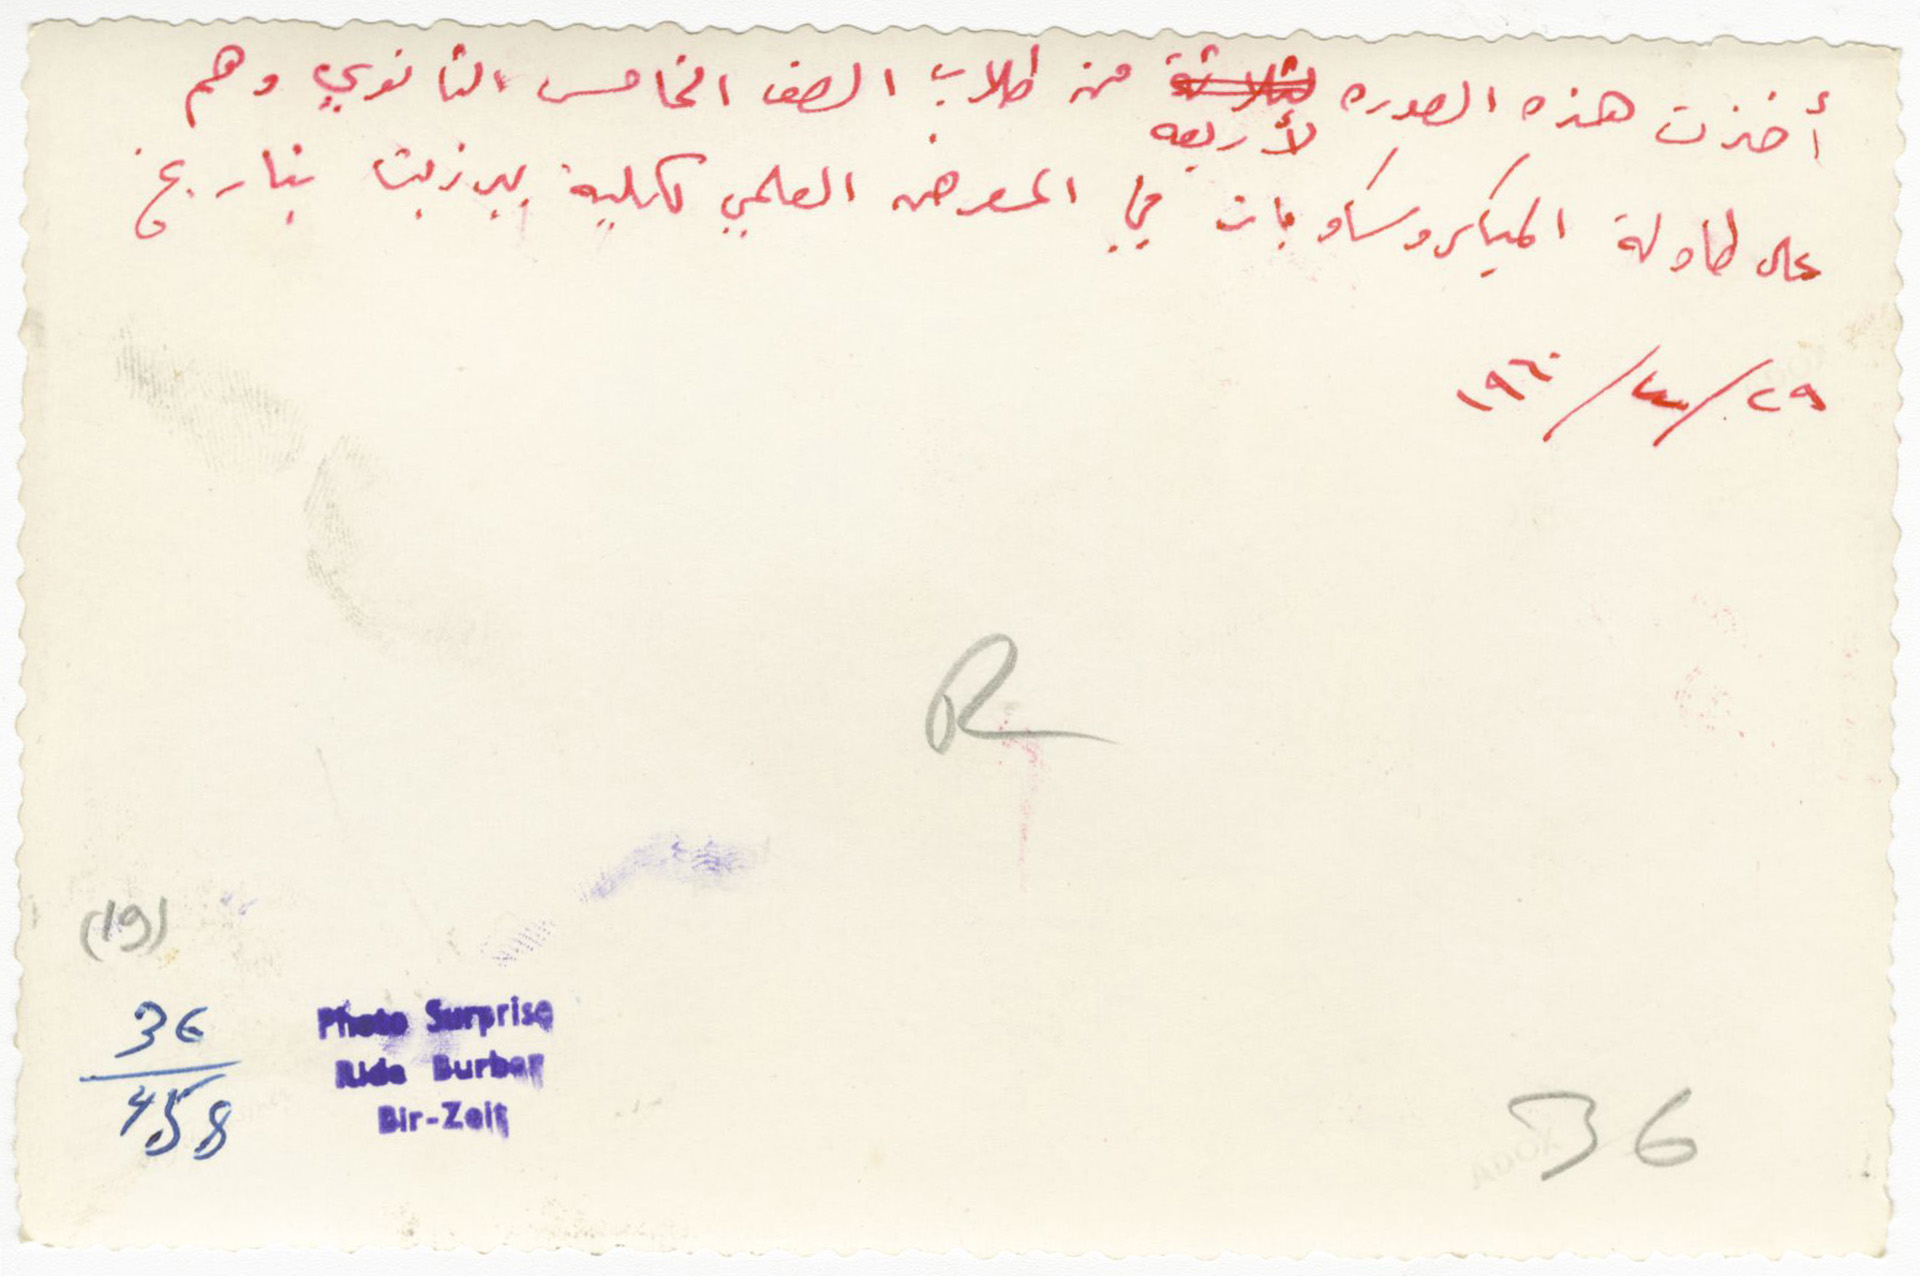 أخذت هذه الصوره لثلاثة من طلاب الصف الخامس الثانوي وهم
لأربعه
على طاولة الميكروسكوبات في المعرض العلمي لكلية بيرزيت بتاريخ
٢٩/٣/١٩٦٠
R
(19)
36
458
Photo Surprise
Rida Burbar
Bir-Zeit
36